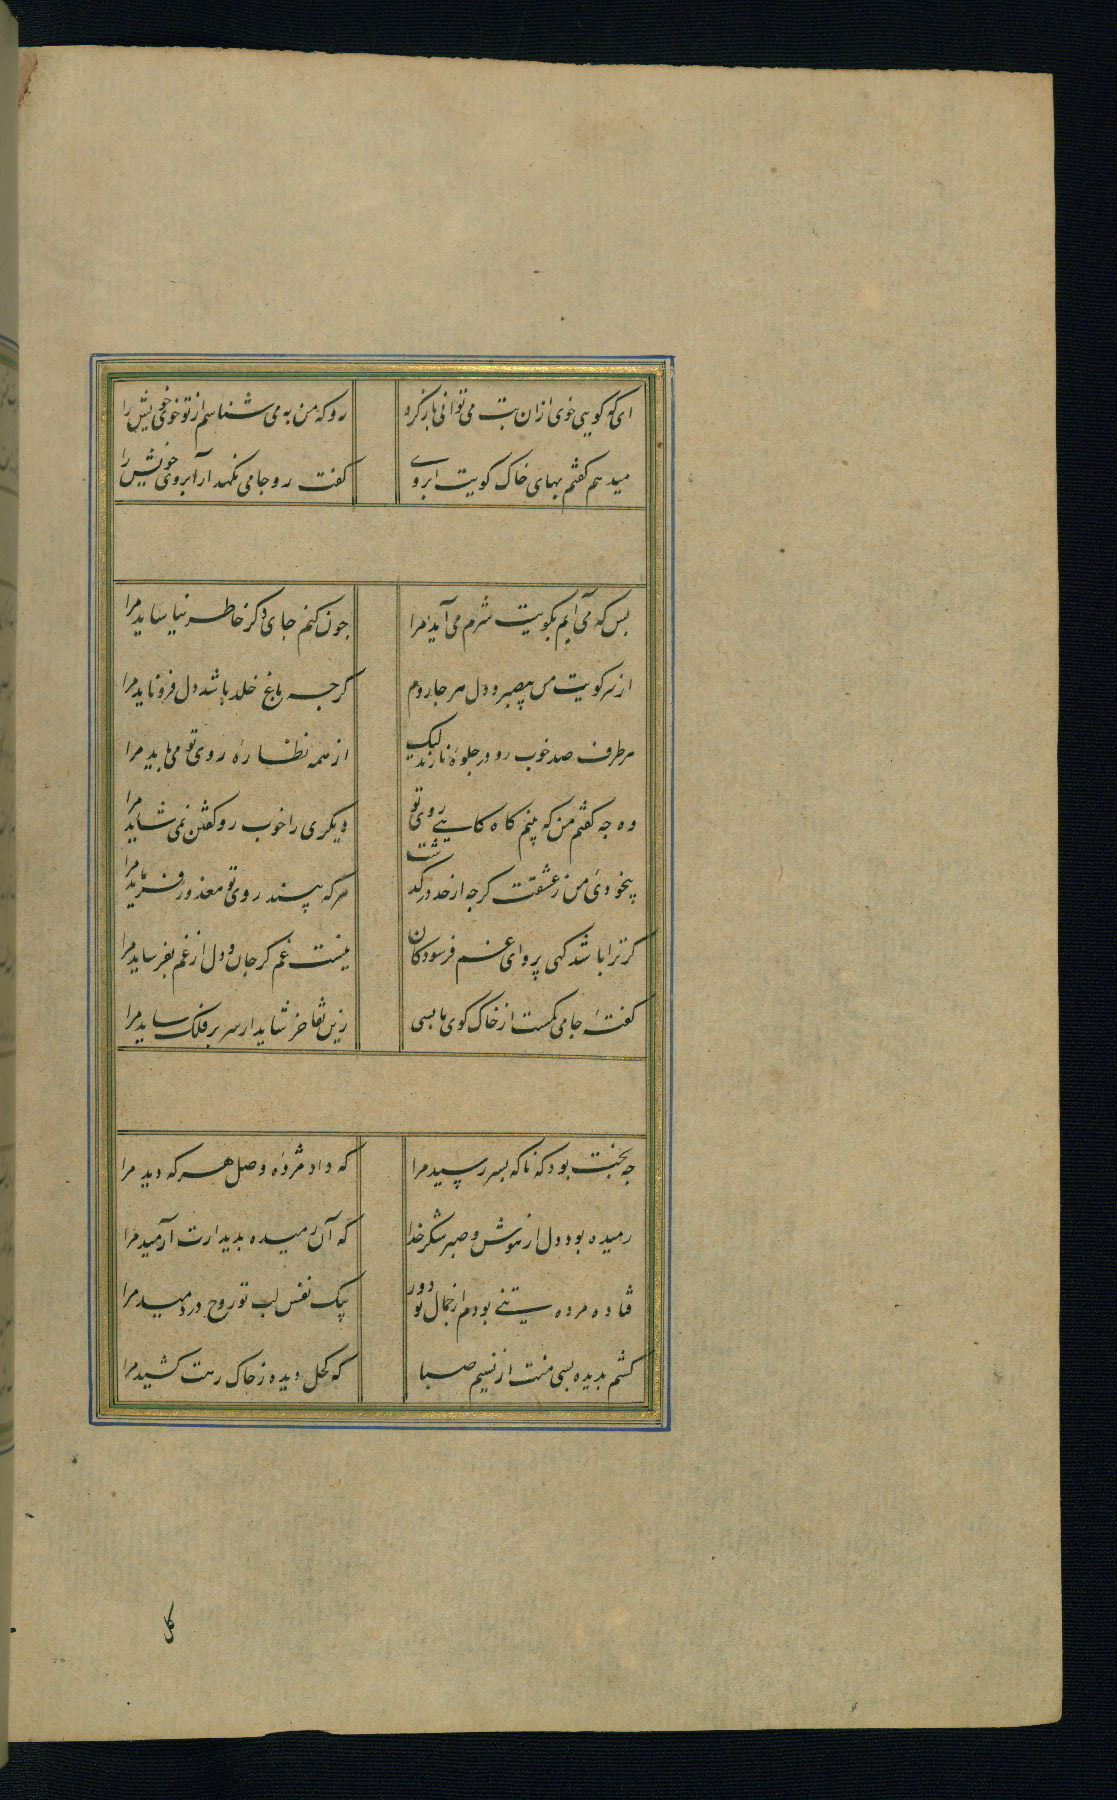 ای که گویی خوی ازان بت می توانی باز کرد روکه من به می شناسم از تو خوی خویش را
میدهم گفتم بهای خاک کویت ابروی گفت رو جامی نگهدار آبروی خویش را
بس که می آیم بکویت شرم می آید مرا چون کنم جای دگر خاطر نیاساید مرا
از سر کویت من بیصبر و دل هر جا روم گرچه باغ خلد باشد دل فرو ناید مرا
هر طرف صد خوب رو در جلوهٔ نازند لیک از همه نظارهٔ روی تو می باید مرا
وه چه گفتم من که بینم گاه گاهی روی تو دیگری را خوب رو گفتن نمی شاید مرا
بیخودی من ز عشقت گرچه از حد در گذشت هر که بیند روی تو معذور فرماید مرا
گر ترا باشد گهی پروای غم فرسودگان نیست غم گر جان و دل از غم بفرساید مرا
گفتهٔ جامی کمست از خاک کوی ما بسی زین تفاخر شاید ار سر بر فلک ساید مرا
چه بخت بود که ناگه بسر رسید مرا که داد مژدهٔ وصل هر که دید مرا
رمیده بود دل از هوش و صبر شکر خدا که آن رمیده بدیدارت آرمید مرا
فتاده مرده تنی بودم از جمال تو دور بیک نفس لب تو روح در دمید مرا
کشم بدیده بسی منت از نسیم صبا که کحل دیده ز خاک رهت کشید مرا